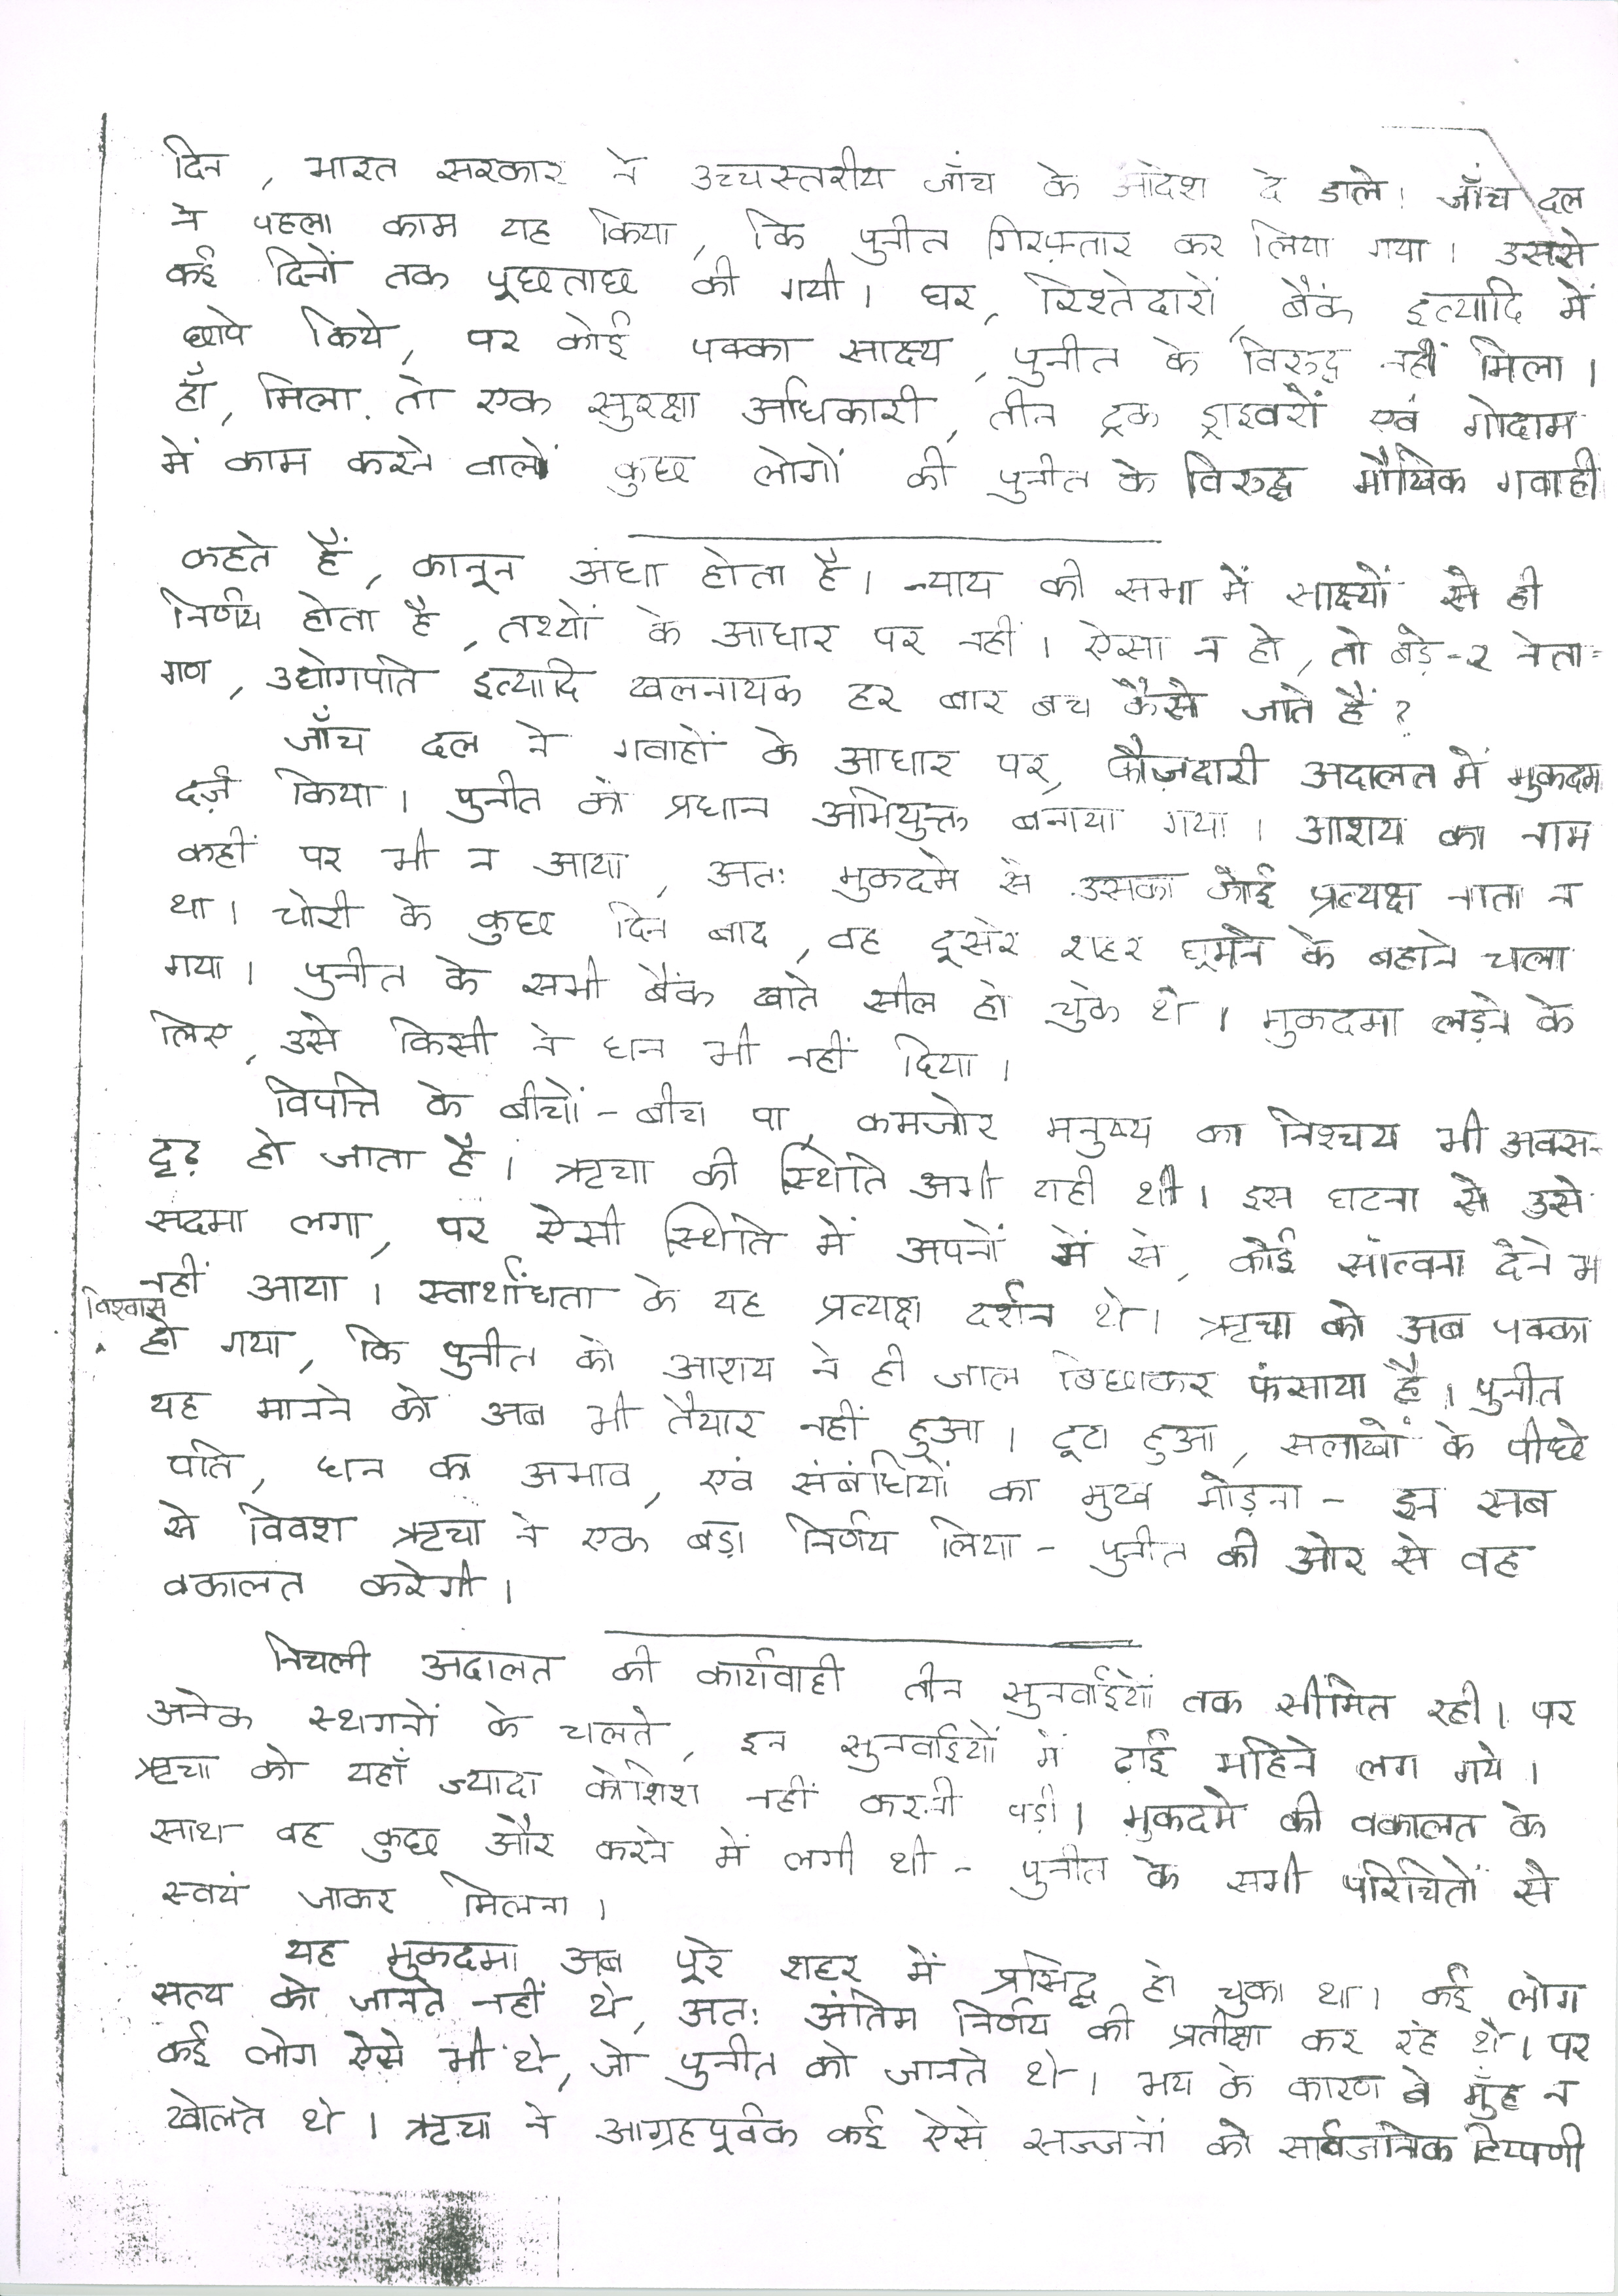 दिन, भारत सरकार ने उच्चस्तरीय जाँच के आदेश दे डाले। जाँच दल
ने पहला काम यह किया, कि पुनीत गिरफ़्तार कर लिया गया। उससे
कई दिनों तक पूछताछ की गयी। घर, रिश्तेदारों, बैंक इत्यादि में
छापे किये, पर कोई पक्का साक्ष्य, पुनीत के विरुद्ध नहीं मिला।
हाँ, मिला तो एक सुरक्षा अधिकारी, तीन ट्रक ड्राइवरों एवं गोदाम
में काम करने वालों कुछ लोगों की पुनीत के विरुद्ध मौखिक गवाही
कहते हैं, कानून अंधा होता है। न्याय की सभा में साक्ष्यों से ही
निर्णय होता है, तथ्यों के आधार पर नहीं। ऐसा न हो, तो बड़े-२ नेता-
गण, उद्योगपति इत्यादि खलनायक हर बार बच कैसे जाते हैं?
जाँच दल ने गवाहों के आधार पर, फ़ौज़दारी अदालत में मुकदम
दर्ज़ किया। पुनीत को प्रधान अभियुक्त बनाया गया। आशय का नाम
कहीं पर भी न आया, अतः मुकदमे से उसका कोई प्रत्यक्ष नाता न
था। चोरी के कुछ दिन बाद, वह दूसरे शहर घूमने के बहाने चला
गया। पुनीत के सभी बैंक खाते सील हो चुके थे। मुकदमा लड़ने के
लिए, उसे किसी ने धन भी नहीं दिया।
विपत्ति के बीचों-बीच पा, कमजोर मनुष्य का निश्चय भी अक्स-
दृढ़ हो जाता है। ऋचा की स्थिति अभी यही थी। इस घटना से उसे
सदमा लगा, पर ऐसी स्थिति में अपनों में से, कोई सांत्वना देने भ
नहीं आया। स्वार्थांधता के यह प्रत्यक्ष दर्शन थे। ऋचा को अब पक्का
विश्वास
हो गया, कि पुनीत को आशय ने ही जाल बिछाकर फंसाया है। पुनीत
यह मानने को अब भी तैयार नहीं हुआ। टूटा हुआ, सलाखों के पीछे
पति, धन का अभाव, एवं संबंधियों का मुख मोड़ना - इन सब
से विवश ऋचा ने एक बड़ा निर्णय लिया - पुनीत की ओर से वह
वकालत करेगी।
निचली अदालत की कार्यवाही तीन सुनवाईयों तक सीमित रही। पर
अनेक स्थगनों के चलते, इन सुनवाईयों में ढाई महिने लग गये।
ऋचा को यहाँ ज्यादा कोशिश नहीं करनी पड़ी। मुकदमे की वकालत के
साथ वह कुछ और करने में लगी थी - पुनीत के सभी परिचितों से
स्वयं जाकर मिलना।
यह मुकदमा अब पूरे शहर में प्रसिद्ध हो चुका था। कई लोग
सत्य को जानते नहीं थे, अतः अंतिम निर्णय की प्रतीक्षा कर रहे थे। पर
कई लोग ऐसे भी थे, जो पुनीत को जानते थे। भय के कारण वे मुँह न
खोलते थे। ऋचा ने आग्रहपूर्वक कई ऐसे सज्जनों को सार्वजनिक टिप्पणी